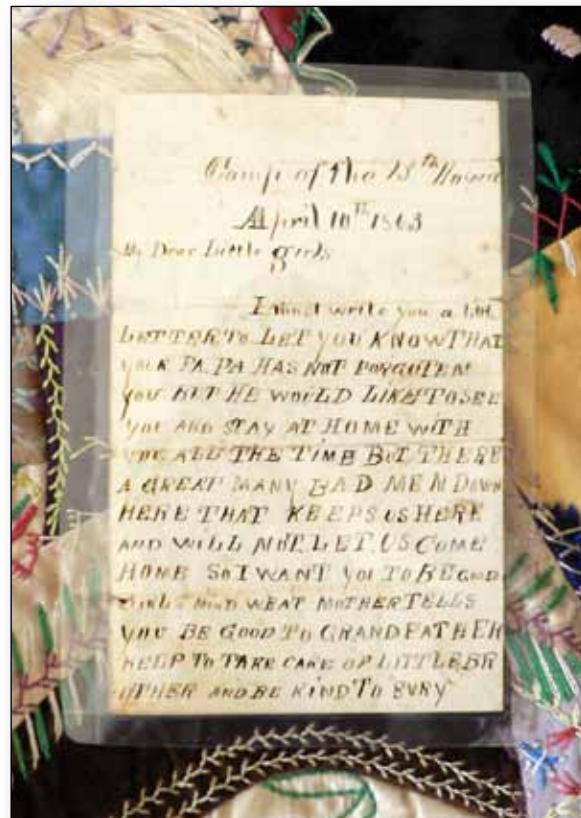 Camp of the 13th Iowa
April 10th 1863
My Dear Little girls
I must write you a litt
LETTER TO LET yOU KNOW THAT
yOUR PA PA HAS NOT FORGOTEN
yOU BUT HE WOULD LIKE TO SEE
yOU AND STAY AT HOME WITH
yOU ALL THE TIME BUT THERE
A GREAT MANy BAD MEN DOWN
HERE THAT KEEPS US HERE
AND WILL NOT LET US COME
HOME SO I WANT yOU TO BE GOOD
GIRLS MIND WEAT MOTHER TELLS
yOU BE GOOD TO GRANDFATHER
HELP TO TAKE CARE OF LITTLE BR
OTHER AND BE KIND TO EVRY